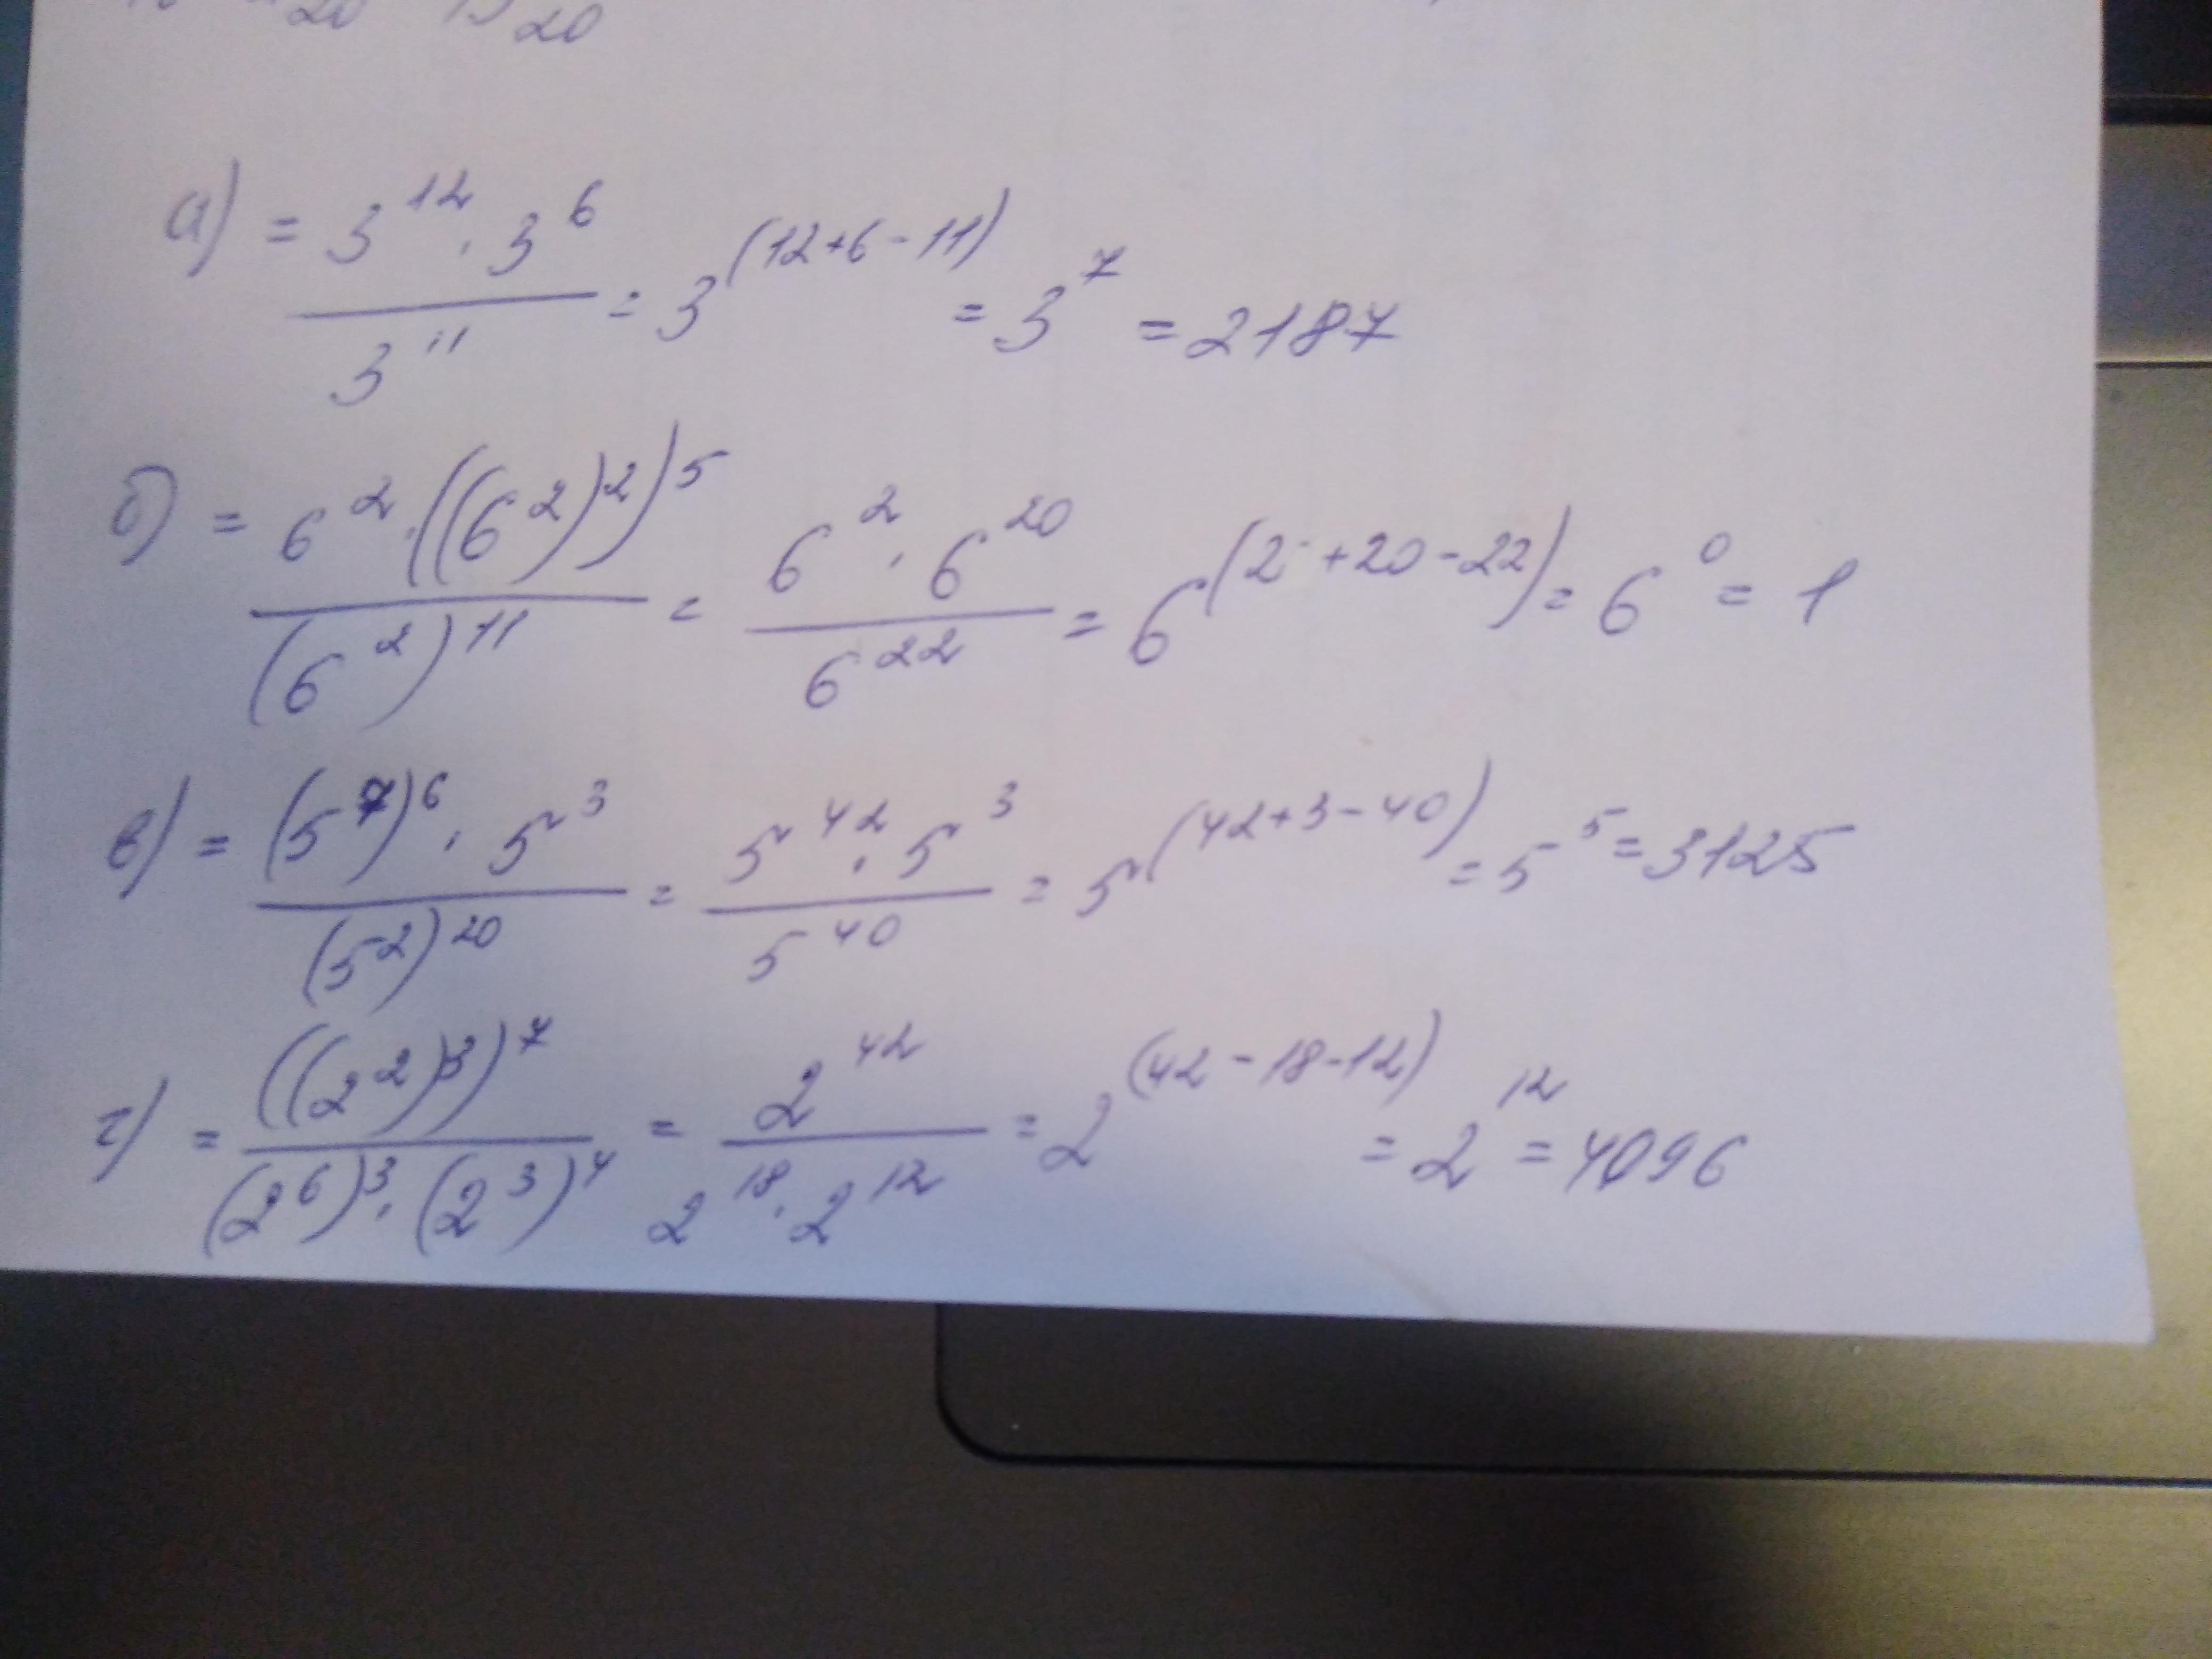 20 20
а) = 3^12 · 3^6 / 3^11 = 3^(12+6-11) = 3^7 = 2187
б) = 6^2 · ((6^2)^2)^5 / (6^2)^11 = 6^2 · 6^20 / 6^22 = 6^(2+20-22) = 6^0 = 1
в) = (5^7)^6 · 5^3 / (5^2)^20 = 5^42 · 5^3 / 5^40 = 5^(42+3-40) = 5^5 = 3125
г) = ((2^2)^3)^7 / (2^6)^3 · (2^3)^4 = 2^42 / 2^18 · 2^12 = 2^(42-18-12) = 2^12 = 4096